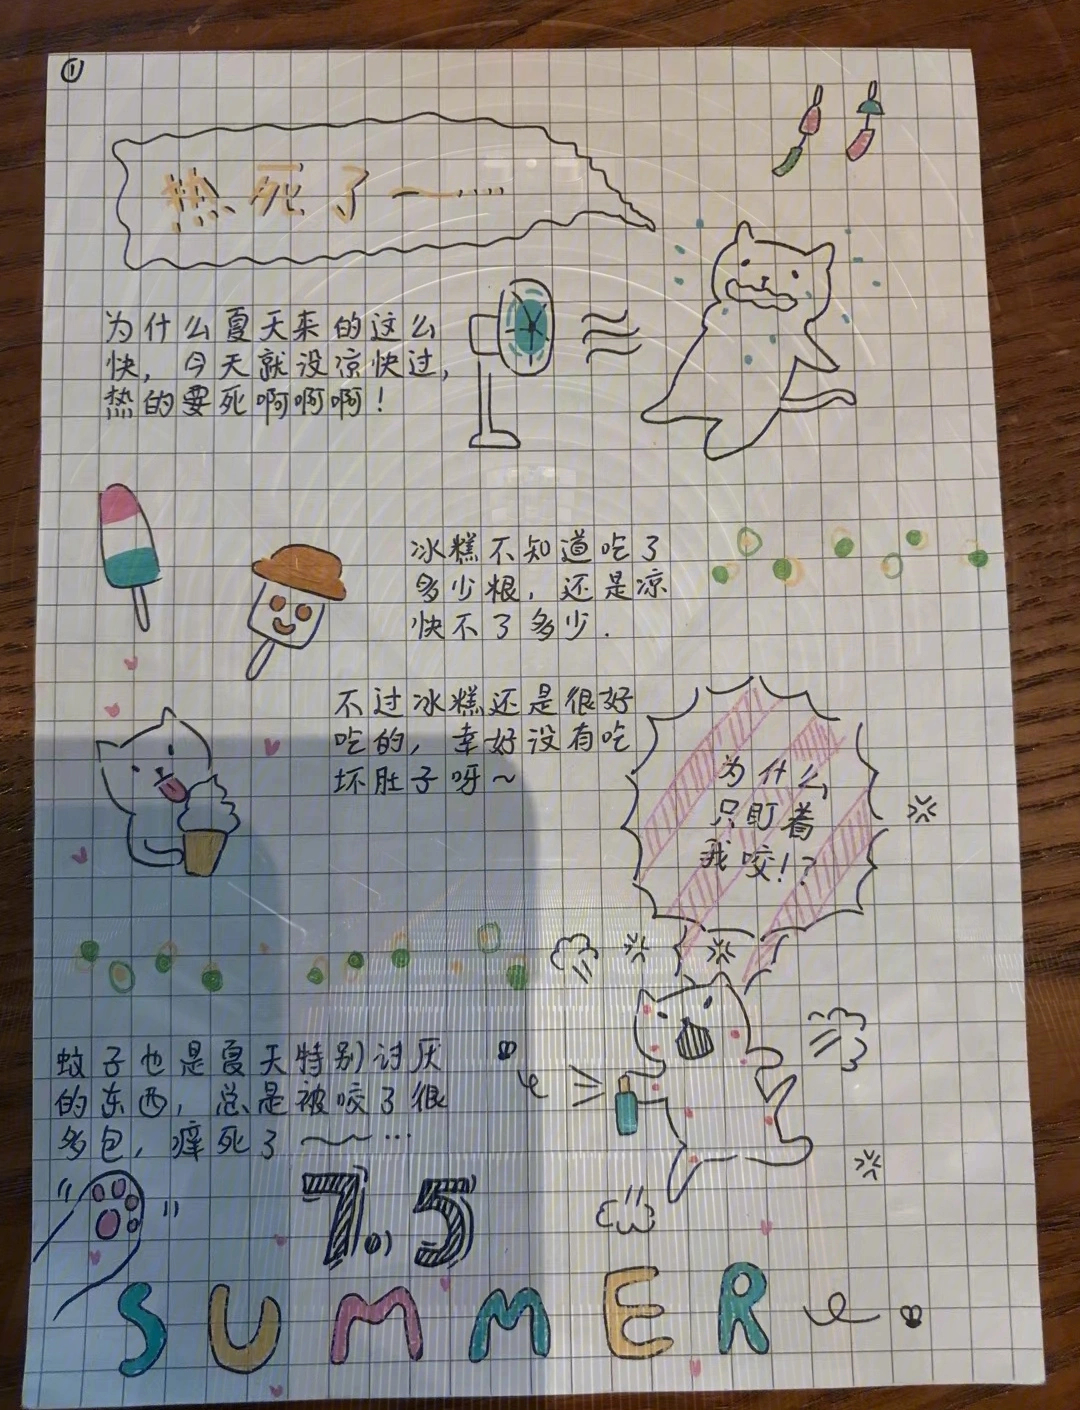 ①
热死了～……
为什么夏天来的这么
快，今天就没凉快过，
热的要死啊啊啊！
冰糕不知道吃了
多少根，还是凉
快不了多少.
不过冰糕还是很好
吃的，幸好没有吃
坏肚子呀～
为什么
只盯着
我咬！？
蚊子也是夏天特别讨厌
的东西，总是被咬了很
多包，痒死了～～…
7.5
SUMMER